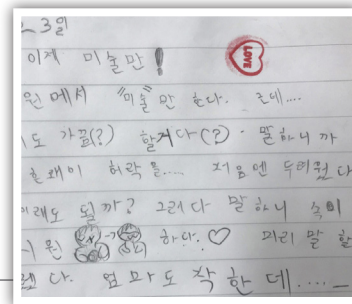 3일
이제 미술만!
LOVE
원에서 "미술"만 한다. 근데....
도 가끔(?) 할거다(?). 말하니까
이 허락을.... 처음엔 두려웠다
이래도 될까? 그러다 말하니 속이
원 하다. ♡ 미리 말할
다. 엄마도 착한데....